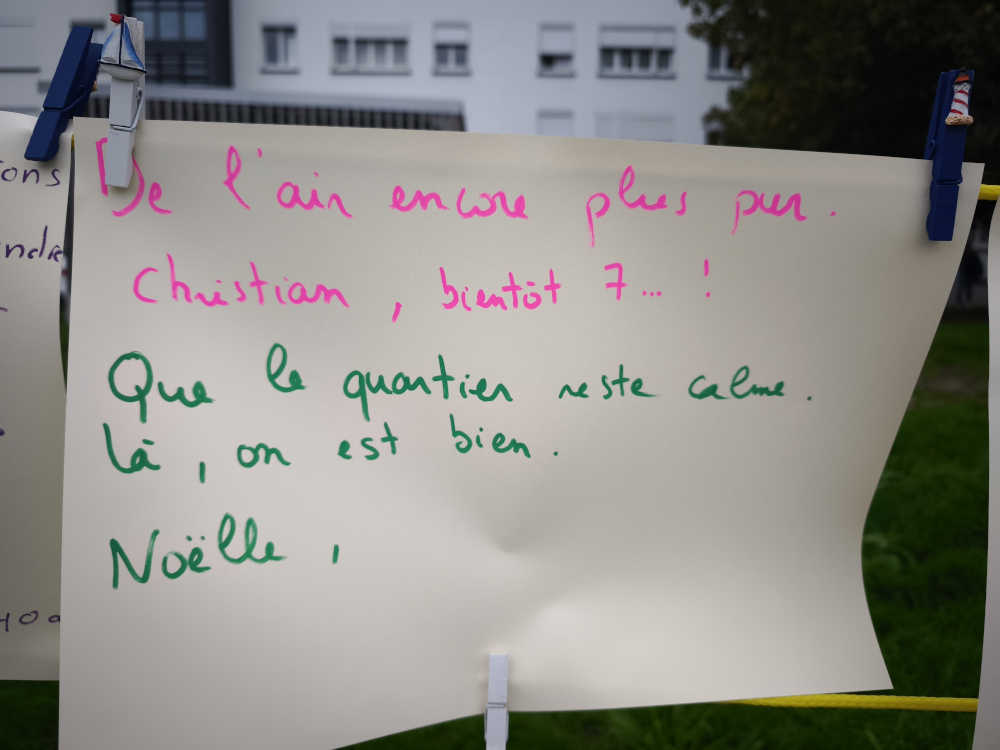 De l'air encore plus pur.
Christian, bientôt 7... !
Que le quartier reste calme.
Là, on est bien.
Noëlle,
ons
ndre